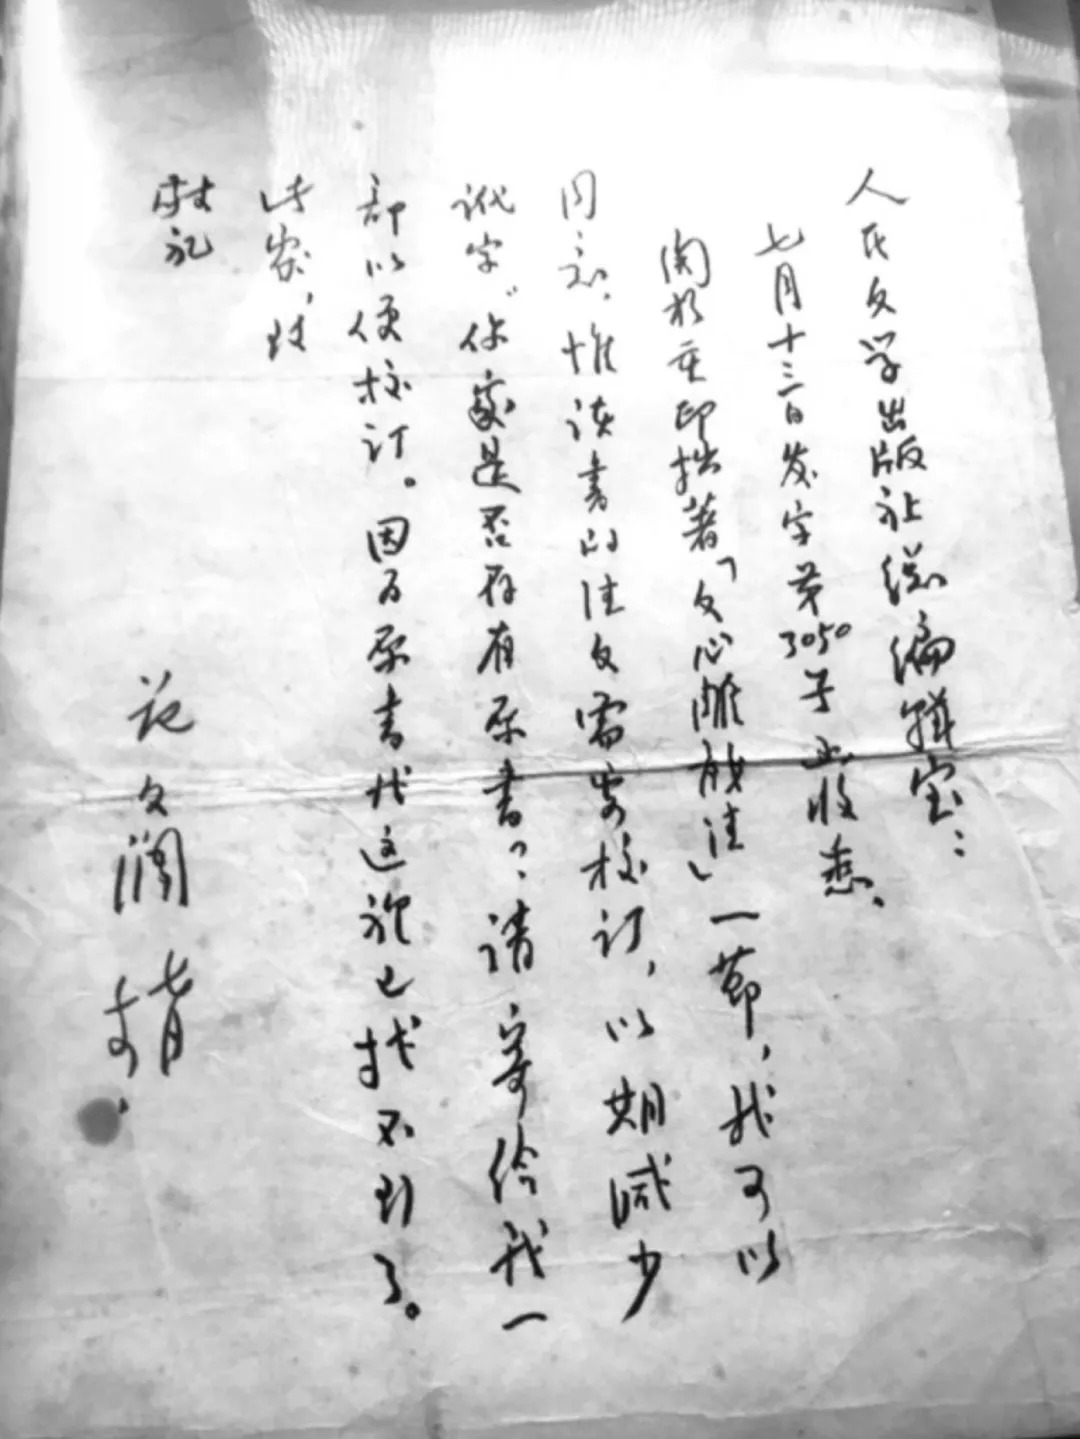 人民文学出版社总编辑室：
七月十三日发字第3050号函收悉。
関於重印拙著「文心雕龙注」一节，我可以
同意。惟该书的注文需要校订，以期减少
讹字。你处是否存有原书？请寄给我一
部以便校订。因为原书我这裡已找不到了。
此致
敬礼
范文澜 七月